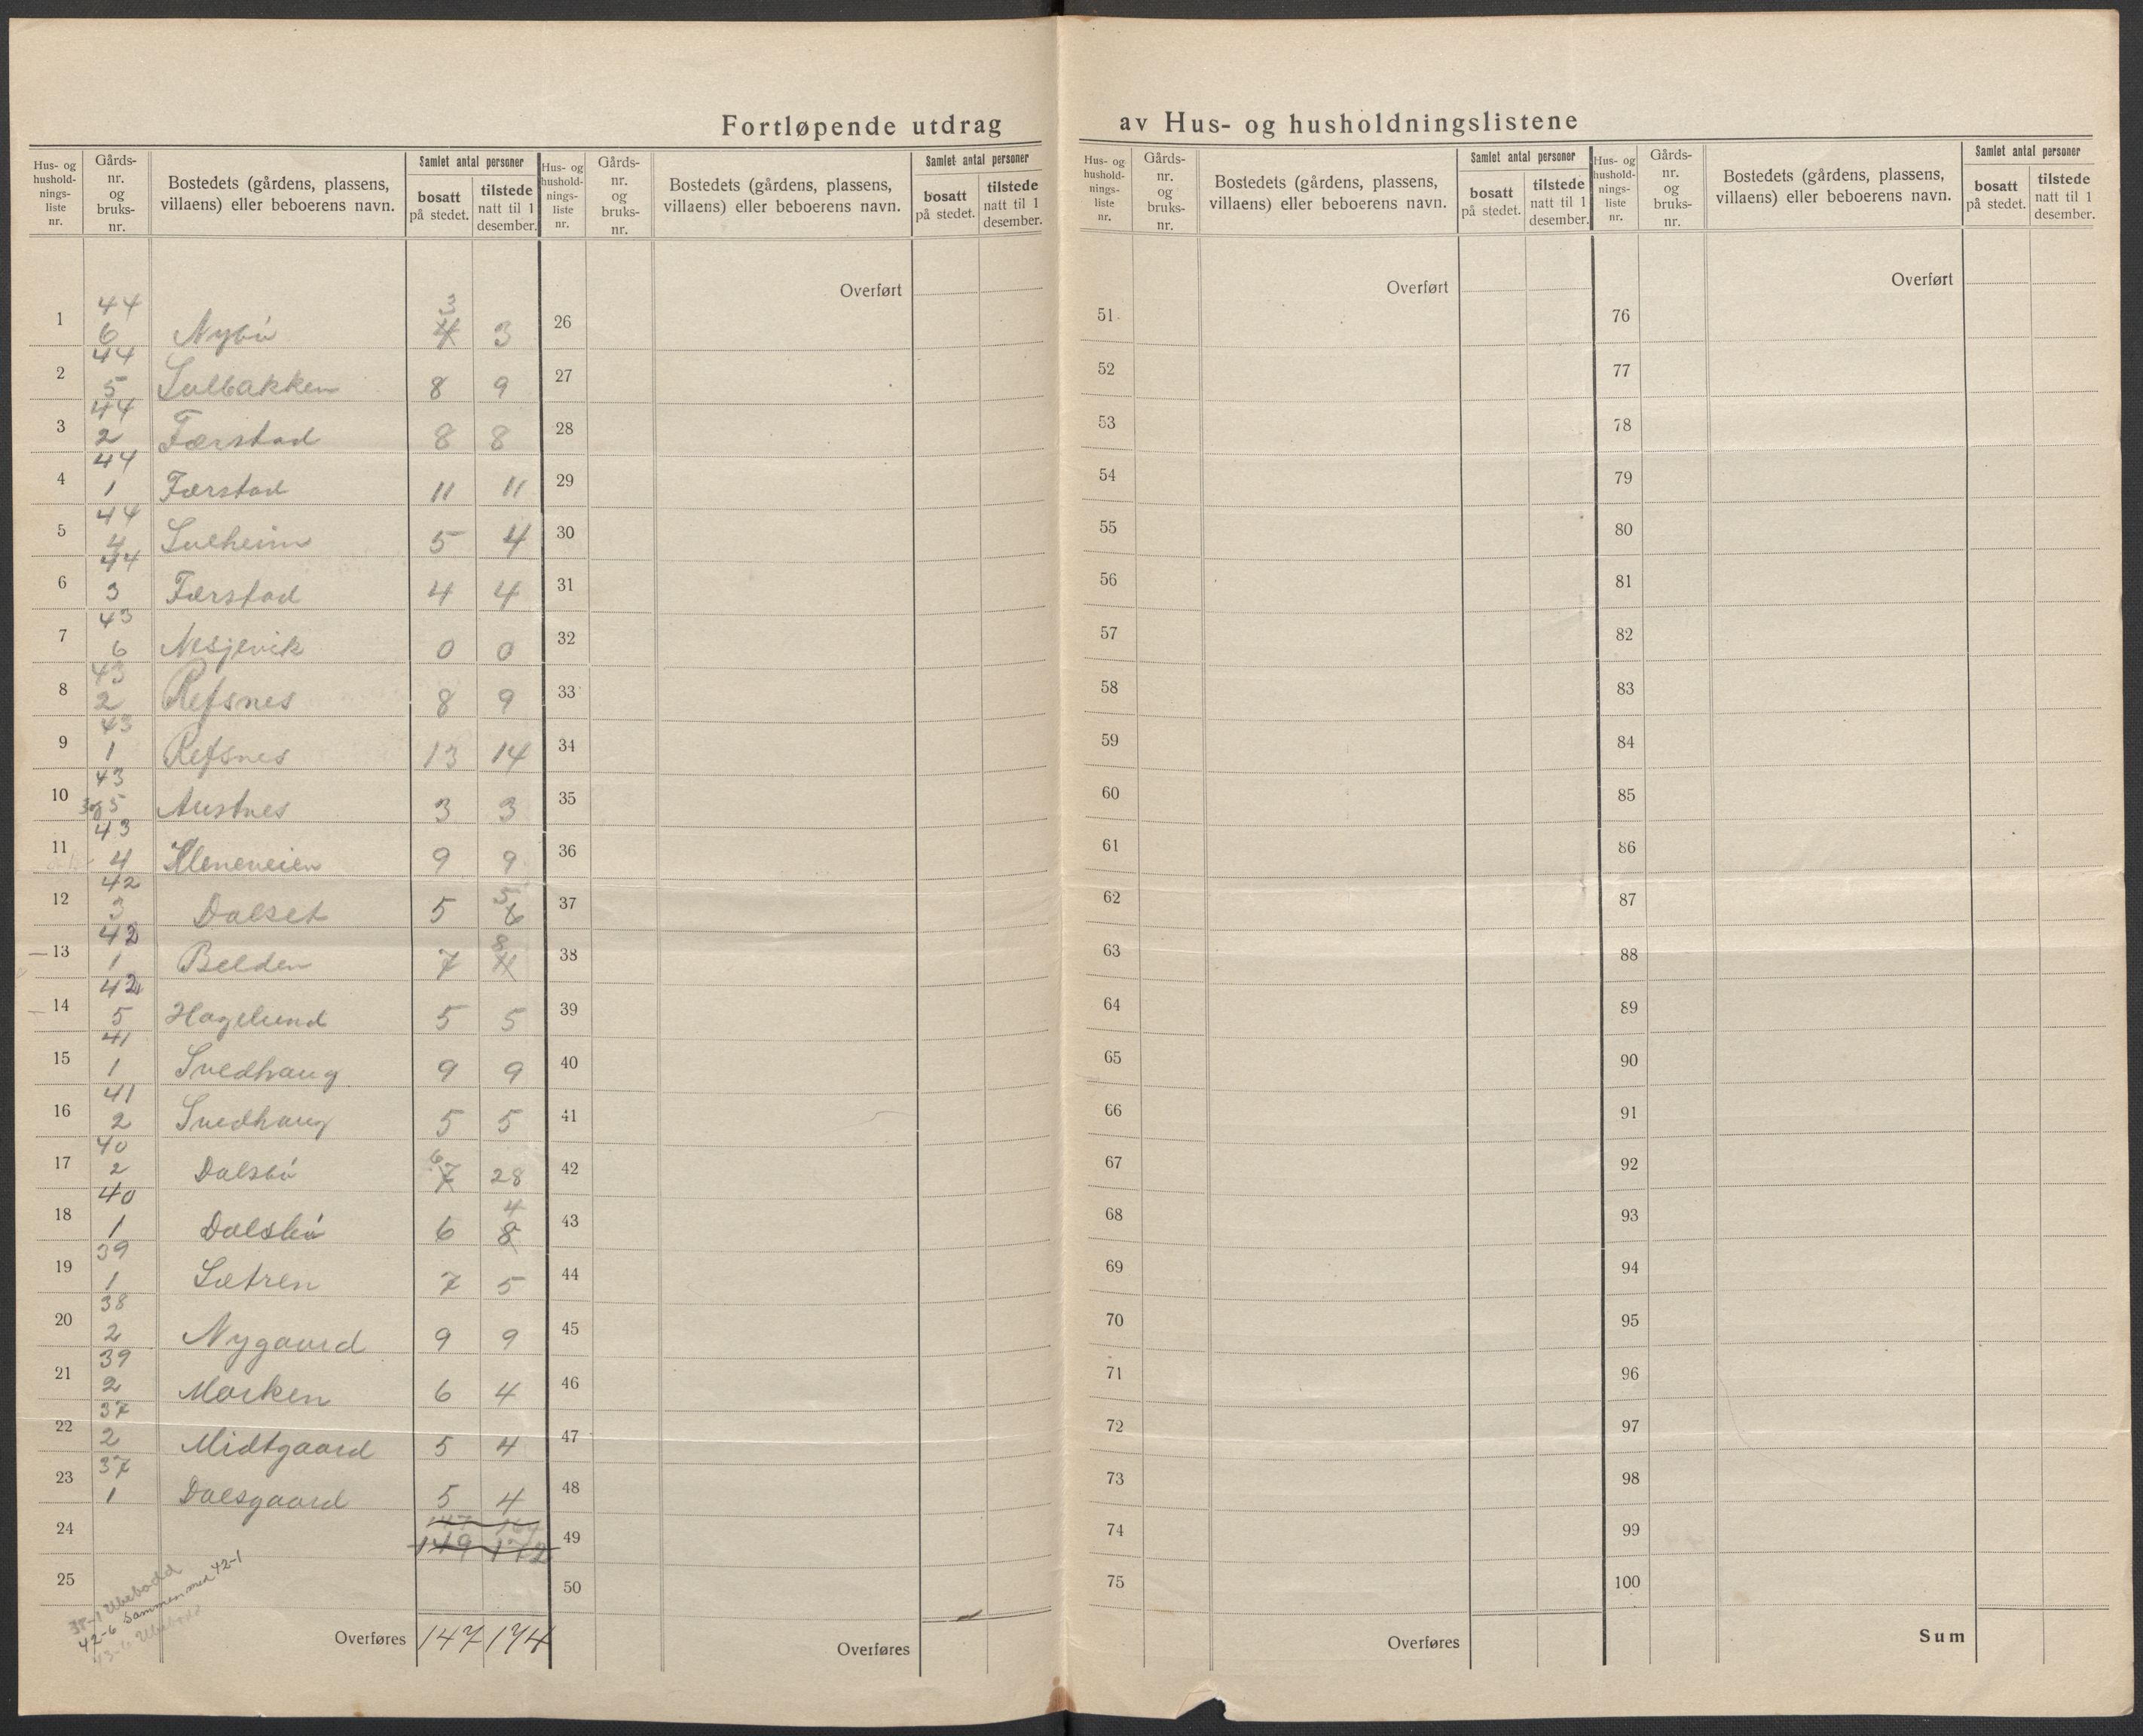 Fortløpende utdrag av Hus- og husholdningslistene
Hus- og husholdningsliste nr. | Gårds-nr. og bruks-nr. | Bostedets (gårdens, plassens, villaens) eller beboerens navn. | Samlet antal personer: bosatt på stedet. | tilstede natt til 1 desember.
1 | 44 6 | Nybö | 4 3 | 3
2 | 44 5 | Solbakken | 8 | 9
3 | 44 2 | Færstad | 8 | 8
4 | 44 1 | Færstad | 11 | 11
5 | 44 4 | Solheim | 5 | 4
6 | 44 3 | Færstad | 4 | 4
7 | 43 6 | Nesjevik | 0 | 0
8 | 43 2 | Refsnes | 8 | 9
9 | 43 1 | Refsnes | 13 | 14
10 | 43 3og5 | Austnes | 3 | 3
11 | 43 4 | Kleneveien | 9 | 9
12 | 42 3 | Dalset | 5 | 6 5
13 | 42 1 | Belden | 7 | 4 8
14 | 42 5 | Hagelund | 5 | 5
15 | 41 1 | Svedhaug | 9 | 9
16 | 41 2 | Svedhaug | 5 | 5
17 | 40 2 | Dalsbö | 7 6 | 28
18 | 40 1 | Dalsbö | 6 | 8 4
19 | 39 1 | Sætren | 7 | 5
20 | 38 2 | Nygaard | 9 | 9
21 | 39 2 | Morken | 6 | 4
22 | 37 2 | Midtgaard | 5 | 4
23 | 37 1 | Dalsgaard | 5 | 4
24 | 147 | 169
149 | 172
25
38-1 Ubebodd
42-6 Sammen med 42-1
43-6 Ubebodd
Overføres 147 174
Hus- og husholdningsliste nr. | Gårds-nr. og bruks-nr. | Bostedets (gårdens, plassens, villaens) eller beboerens navn. | Samlet antal personer: bosatt på stedet. | tilstede natt til 1 desember.
Overført
26
27
28
29
30
31
32
33
34
35
36
37
38
39
40
41
42
43
44
45
46
47
48
49
50
Overføres
Hus- og husholdningsliste nr. | Gårds-nr. og bruks-nr. | Bostedets (gårdens, plassens, villaens) eller beboerens navn. | Samlet antal personer: bosatt på stedet. | tilstede natt til 1 desember.
Overført
51
52
53
54
55
56
57
58
59
60
61
62
63
64
65
66
67
68
69
70
71
72
73
74
75
Overføres
Hus- og husholdningsliste nr. | Gårds-nr. og bruks-nr. | Bostedets (gårdens, plassens, villaens) eller beboerens navn. | Samlet antal personer: bosatt på stedet. | tilstede natt til 1 desember.
Overført
76
77
78
79
80
81
82
83
84
85
86
87
88
89
90
91
92
93
94
95
96
97
98
99
100
Sum